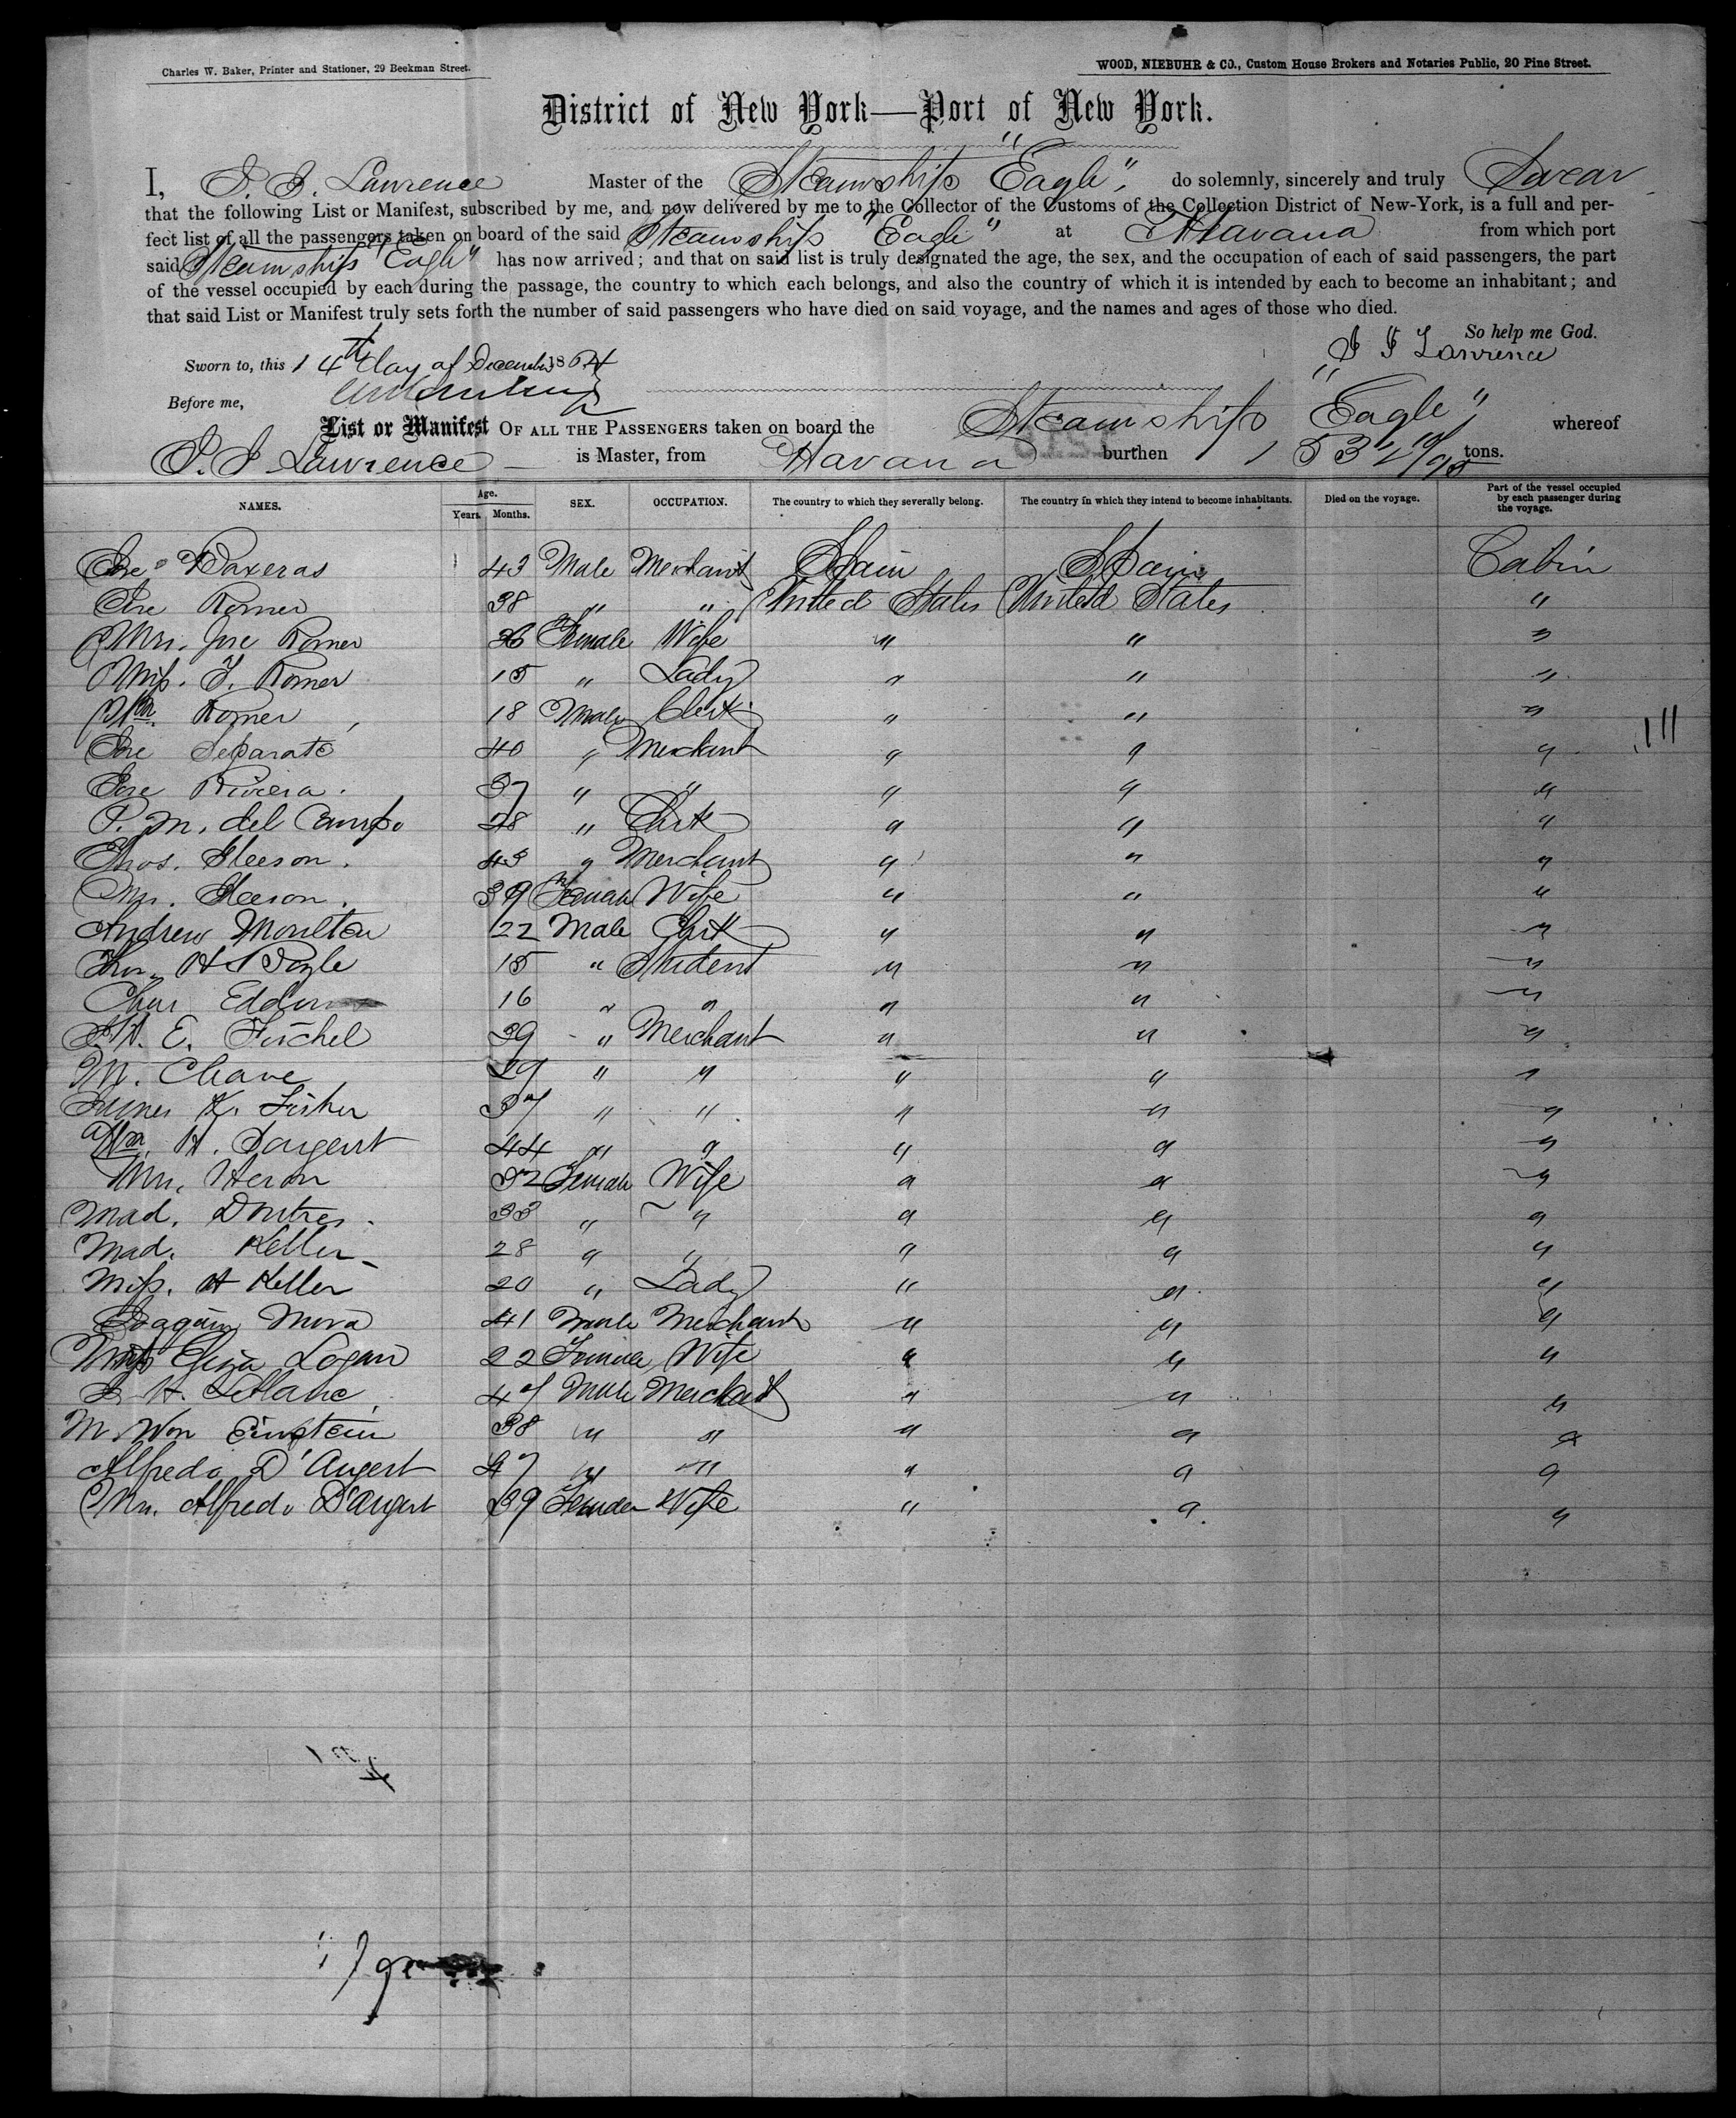 Charles W. Baker, Printer and Stationer, 29 Beekman Street.
WOOD, NIEBUHR & CO., Custom House Brokers and Notaries Public, 20 Pine Street.
District of New York—Port of New York.
I, Lawrence Master of the Steamship "Eagle", do solemnly, sincerely and truly Swear
that the following List or Manifest, subscribed by me, and now delivered by me to the Collector of the Customs of the Collection District of New-York, is a full and per-
fect list of all the passengers taken on board of the said Steamship "Eagle" at Havana from which port
said Steamship "Eagle" has now arrived; and that on said list is truly designated the age, the sex, and the occupation of each of said passengers, the part
of the vessel occupied by each during the passage, the country to which each belongs, and also the country of which it is intended by each to become an inhabitant; and
that said List or Manifest truly sets forth the number of said passengers who have died on said voyage, and the names and ages of those who died.
So help me God.
Lawrence
Sworn to, this 14th day of December 1864
Before me,
List or Manifest OF ALL THE PASSENGERS taken on board the Steamship "Eagle", whereof
Lawrence is Master, from Havana burthen tons.
NAMES. Age. Years. Months. SEX. OCCUPATION. The country to which they severally belong. The country in which they intend to become inhabitants. Died on the voyage. Part of the vessel occupied by each passenger during the voyage.
Jose Baxeras 43 Male Merchant Spain Spain Cabin
Jose Romer 38 " " United States United States "
Mrs. Jose Romer 36 Female Wife " " "
Miss. F. Romer 15 " Lady " " "
Wm. Romer 18 Male Clerk " " "
Jose 40 " Merchant " " "
Jose Riviera. 37 " " " " "
P. M. del Campo 28 " Clerk " " "
Thos. Gleeson. 43 " Merchant " " "
Mrs. Gleeson. 39 Female Wife " " "
Andrew Moulton 22 Male Clerk " " "
H Boyle 15 " Student " " "
Chas 16 " " " " "
E. Fischel 39 " Merchant " " "
M. Chave 29 " " " " "
James K. Fisher 37 " " " " "
Wm. H. Sargent 44 " " " " "
Mrs. Heron 32 Female Wife " " "
Mad. 33 " " " " "
Mad. Keller 28 " " " " "
Miss. H Keller 20 " Lady " " "
Joaquin Mora 41 Male Merchant " " "
Eliza Logan 22 Female Wife " " "
H. LeBlanc 47 Male Merchant " " "
M. Von Einstein 38 " " " " "
Alfredo D'Angert 47 " " " " "
Mrs. Alfredo D'Angert 39 Female Wife " " "